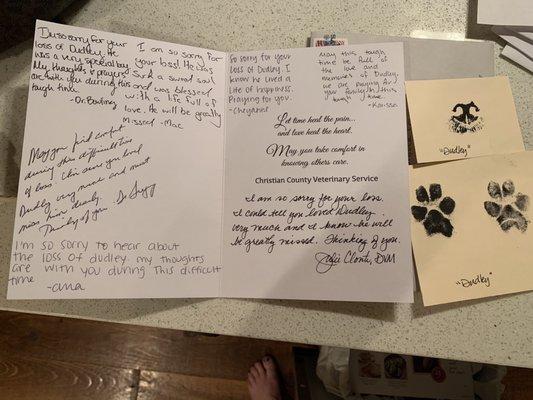 I'm so sorry for your
loss of Dudley. He
was a very special boy.
My thoughts & prayers
are with you during this
tough time.
-Dr. Bowling
I am so sorry for
your loss! He was
such a sweet soul
and was blessed
with a life full of
love. He will be greatly
missed -Mac
May you find comfort
during this difficult time
of loss. I'm sure you loved
Dudley very much and must
miss him dearly.
Thinking of you.
I'm so sorry to hear about
the loss of dudley. my thoughts
are with you during this difficult
time -ana
So sorry for your
loss of Dudley. I
know he lived a
life of happiness.
Praying for you.
-Cheyanne
May this tough
time be full of
the love and
memories of Dudley.
we are praying for
your family in this
tough time.
Let time heal the pain...
and love heal the heart.
May you take comfort in
knowing others care.
Christian County Veterinary Service
I am so sorry for your loss.
I could tell you loved Dudley
very much and I know he will
be greatly missed. Thinking of you.
Julie Clonts, DVM
"Dudley"
"Dudley"